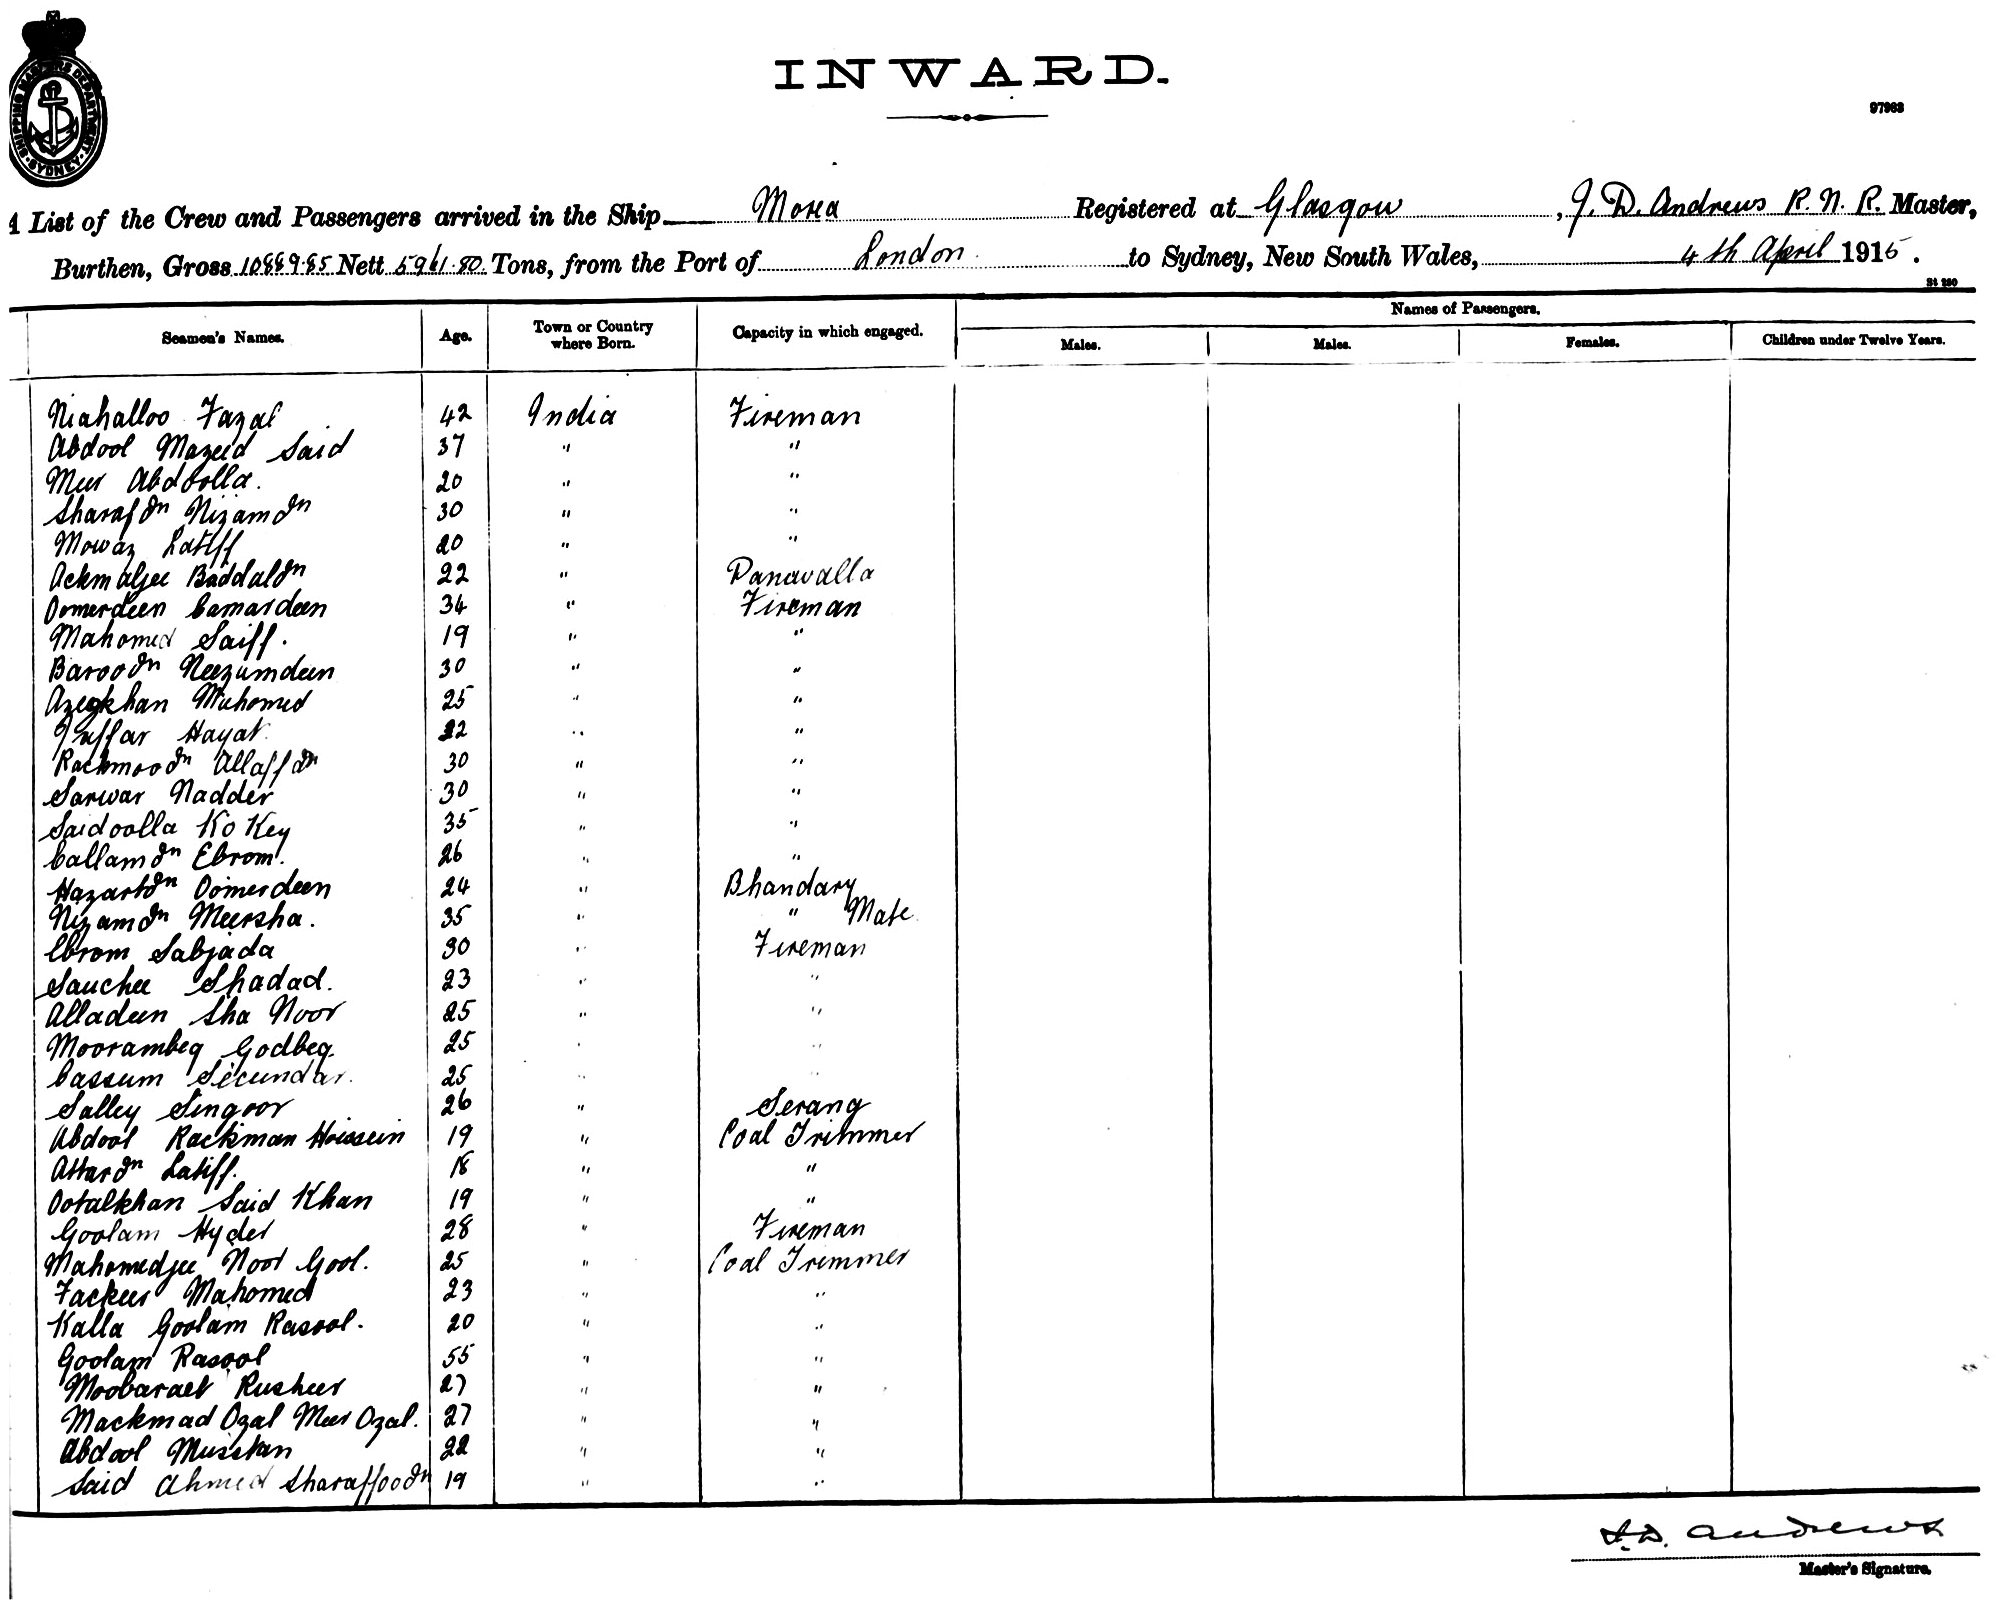 SHIPPING MASTERS DEPARTMENT SYDNEY
INWARD.
97963
A List of the Crew and Passengers arrived in the Ship Morea Registered at Glasgow, J. D. Andrews R. N. R. Master,
Burthen, Gross 10889.85 Nett 5961.80 Tons, from the Port of London to Sydney, New South Wales, 4th April 1915.
Seamen's Names. Age. Town or Country where Born. Capacity in which engaged. Names of Passengers.
Males. Males. Females. Children under Twelve Years.
Niahalloo Fazal 42 India Fireman
Abdool Mazeed Said 37 " "
Meer Abdoolla. 20 " "
Sharafdn Nizamdn 30 " "
Mowaz Latiff 20 " "
Ackmaljee Baddaldn 22 " Panawalla
Oomerdeen Camardeen 34 " Fireman
Mahomed Saiff. 19 " "
Baroodn Neezumdeen 30 " "
Azegkhan Mahomed 25 " "
Juffar Hayat. 22 " "
Rackmoodn Allaffdn 30 " "
Sarwar Nadder 30 " "
Saidoolla Ko Key 35 " "
Callamdn Ebrom. 26 " "
Hazartdn Oomerdeen 24 " Bhandary
Nizamdn Meersha. 35 " " Mate
Ebrom Sabjada 30 " Fireman
Sauchee Shadad. 23 " "
Alladeen Sha Noor 25 " "
Moorambeg Godbeg. 25 " "
Cassum Secundar. 25 " "
Salley Singoor 26 " Serang
Abdool Rackman Hoissein 19 " Coal Trimmer
Attardn Latiff. 18 " "
Ootalkhan Said Khan 19 " "
Goolam Hyder 28 " Fireman
Mahomedjee Noor Gool. 25 " Coal Trimmer
Fackeer Mahomed 23 " "
Kalla Goolam Rasool. 20 " "
Goolam Rasool 55 " "
Moobaraet Rusheer 27 " "
Mackmad Ozal Meer Ozal. 27 " "
Abdool Musstan 22 " "
Said Ahmed Sharaffoodn 19 " "
J. D. Andrews
Master's Signature.